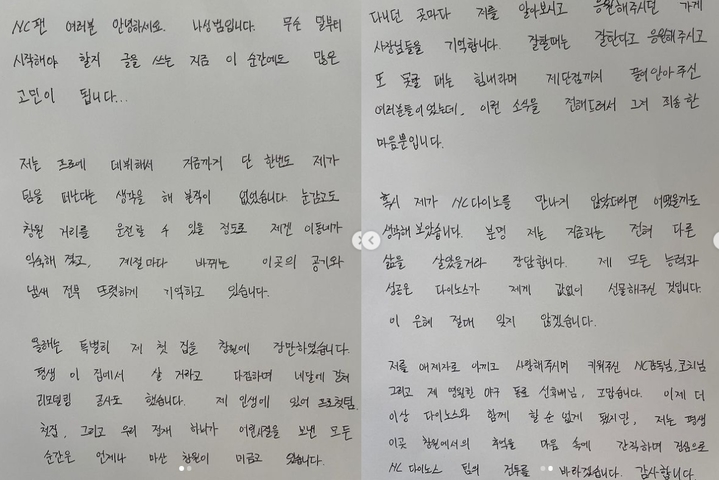 NC팬 여러분 안녕하세요. 나성범입니다. 무슨 말부터
시작해야 할지 글을 쓰는 지금 이 순간에도 많은
고민이 됩니다...
저는 프로에 데뷔해서 지금까지 단 한번도 제가
팀을 떠난다는 생각을 해 본적이 없었습니다. 눈감고도
창원 거리를 운전할 수 있을 정도로 제겐 이동네가
익숙해 졌고, 계절마다 바뀌는 이곳의 공기와
냄새 전부 또렷하게 기억하고 있습니다.
올해는 특별히 제 첫 집을 창원에 장만하였습니다.
평생 이 집에서 살 거라고 다짐하며 네달에 걸쳐
리모델링 공사도 했습니다. 제 인생에 있어 프로첫팀,
첫집, 그리고 우리 정재 하나가 어린시절을 보낸 모든
순간은 언제나 마산 창원이 따르고 있습니다.
다니던 곳마다 저를 알아보시고 응원해주시던 가게
사장님들을 기억합니다. 잘할때는 잘한다고 응원해주시고
또 못할 때는 힘내라며 제단점까지 끌어안아주신
여러분들이었는데, 이런 소식을 전해드려서 그저 죄송한
마음뿐입니다.
혹시 제가 NC다이노스를 만나지 않았더라면 어땠을까도
생각해 보았습니다. 분명 저는 지금과는 전혀 다른
삶을 살았을거라 장담합니다. 제 모든 능력과
성공은 다이노스가 제게 값없이 선물해주신 것입니다.
이 은혜 절대 잊지 않겠습니다.
저를 애제자로 아끼고 사랑해주시며 키워주신 NC감독님, 코치님
그리고 제 영원한 야구 동료 선후배님, 고맙습니다. 이제 더
이상 다이노스와 함께 할 순 없게 됐지만, 저는 평생
이곳 창원에서의 추억을 마음 속에 간직하며 진심으로
NC 다이노스 팀의 건투를 바라겠습니다. 감사합니다.